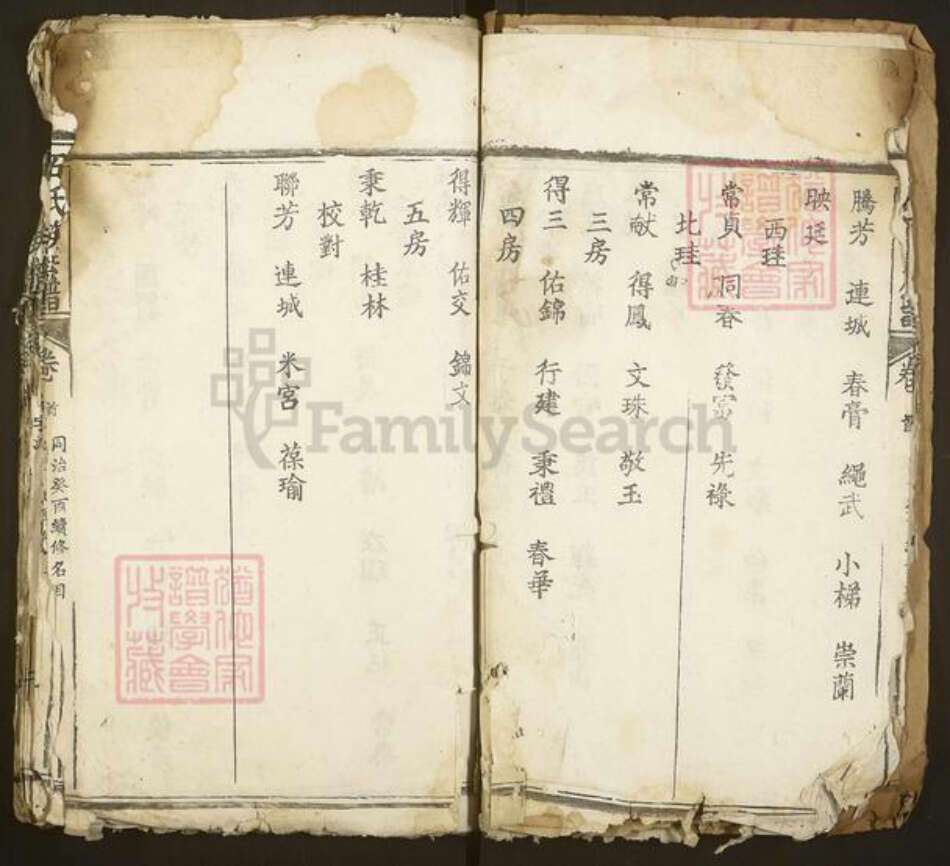 騰芳 連城 春膏 繩武 小梯 崇蘭
映廷
西珪
常貞 洞春 發富 先祿
北珪
常献 得鳳 文珠 敬玉
三房
得三 佑錦 行建 秉禮 春華
四房
得輝 佑交 錦文
五房
秉乾 桂林
校對
聯芳 連城 米宮 葆瑜
同治癸酉續修名目
卷
譜學會
收藏
FamilySearch